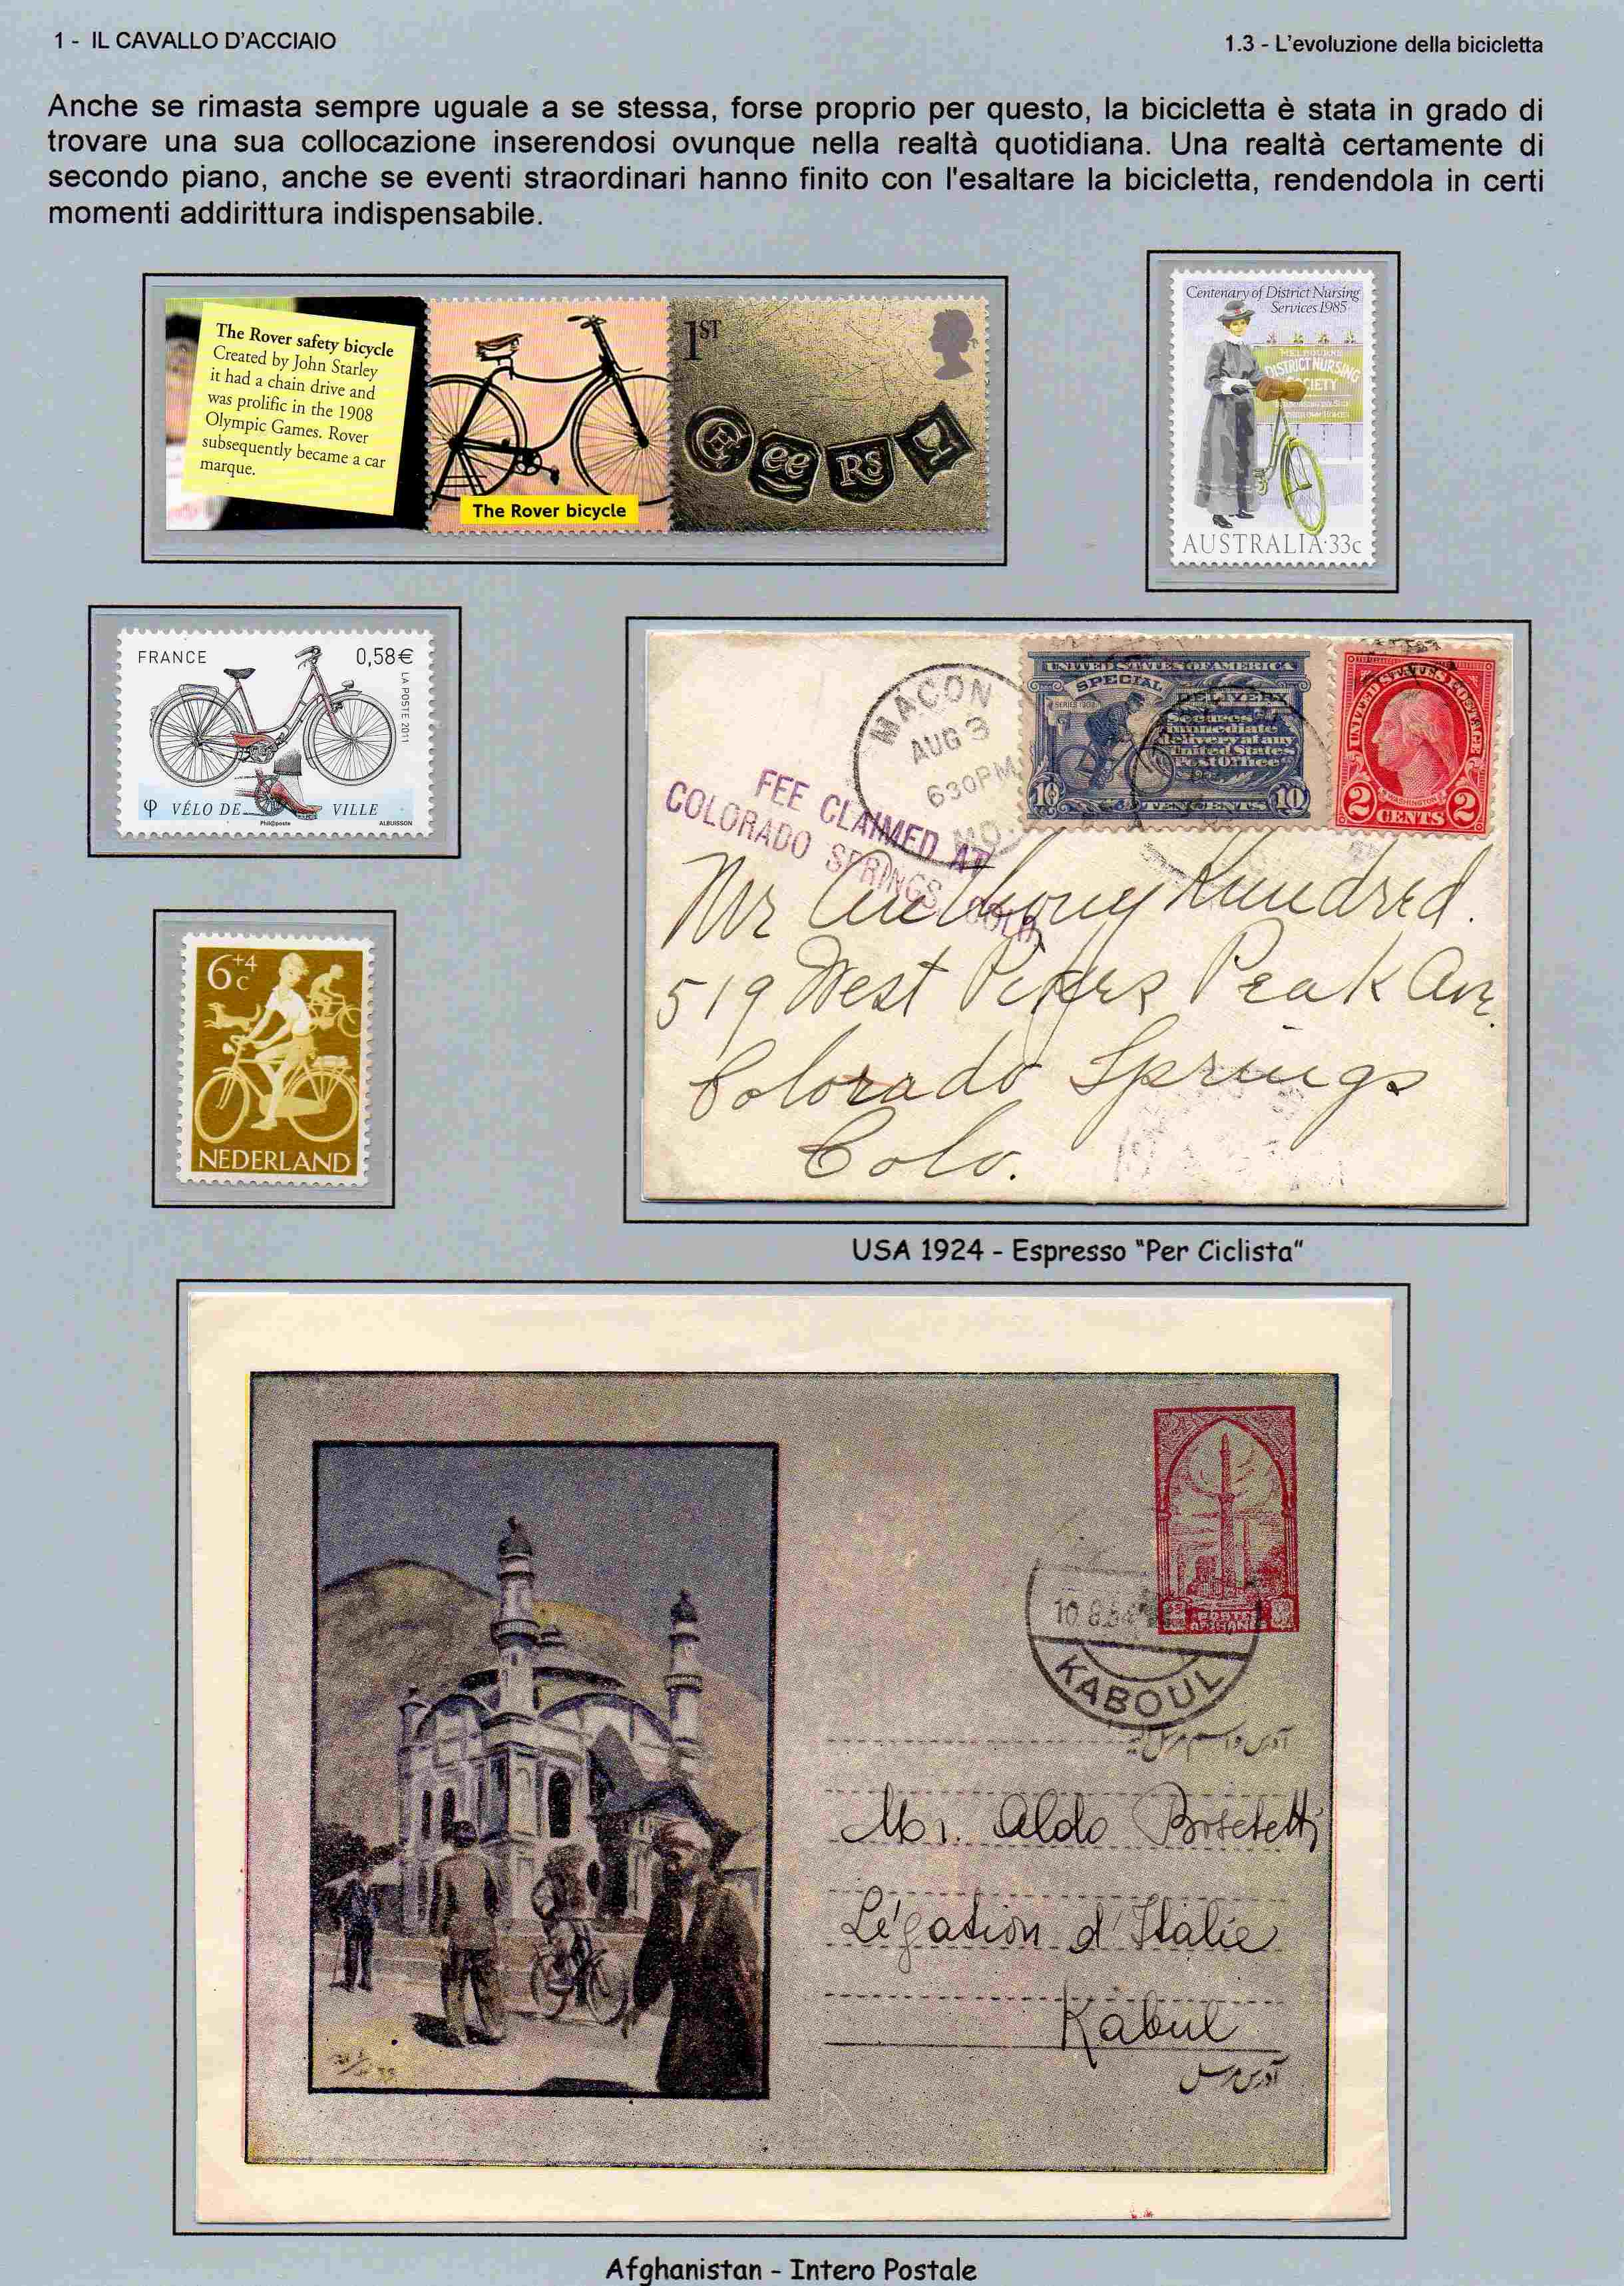 1 - IL CAVALLO D'ACCIAIO
1.3 - L'evoluzione della bicicletta
Anche se rimasta sempre uguale a se stessa, forse proprio per questo, la bicicletta è stata in grado di
trovare una sua collocazione inserendosi ovunque nella realtà quotidiana. Una realtà certamente di
secondo piano, anche se eventi straordinari hanno finito con l'esaltare la bicicletta, rendendola in certi
momenti addirittura indispensabile.
The Rover safety bicycle
Created by John Starley
it had a chain drive and
was prolific in the 1908
Olympic Games. Rover
subsequently became a car
marque.
The Rover bicycle
1ST
Centenary of District Nursing
Services 1985
MELBOURNE
DISTRICT NURSING
SOCIETY
AUSTRALIA·33c
FRANCE
0,58€
LA POSTE 2011
φ VÉLO DE VILLE
Phil@poste
ALBUISSON
MACON
AUG 3
630PM
MO.
UNITED STATES OF AMERICA
SPECIAL DELIVERY
SERIES 1902
Secures
immediate
delivery at any
United States
Post Office
TEN CENTS 10
UNITED STATES POSTAGE
WASHINGTON
2 CENTS 2
FEE CLAIMED AT
COLORADO SPRINGS, COLO.
Mr Anthony Kundred.
519 West Pikes Peak Ave.
Colorado Springs
Colo.
6+4
c
NEDERLAND
USA 1924 - Espresso "Per Ciclista"
10.8.54
KABOUL
POSTES
AFGHANES
Mr. Aldo Boschetti
Légation d'Italie
Kabul
آدرس مرسل
Afghanistan - Intero Postale